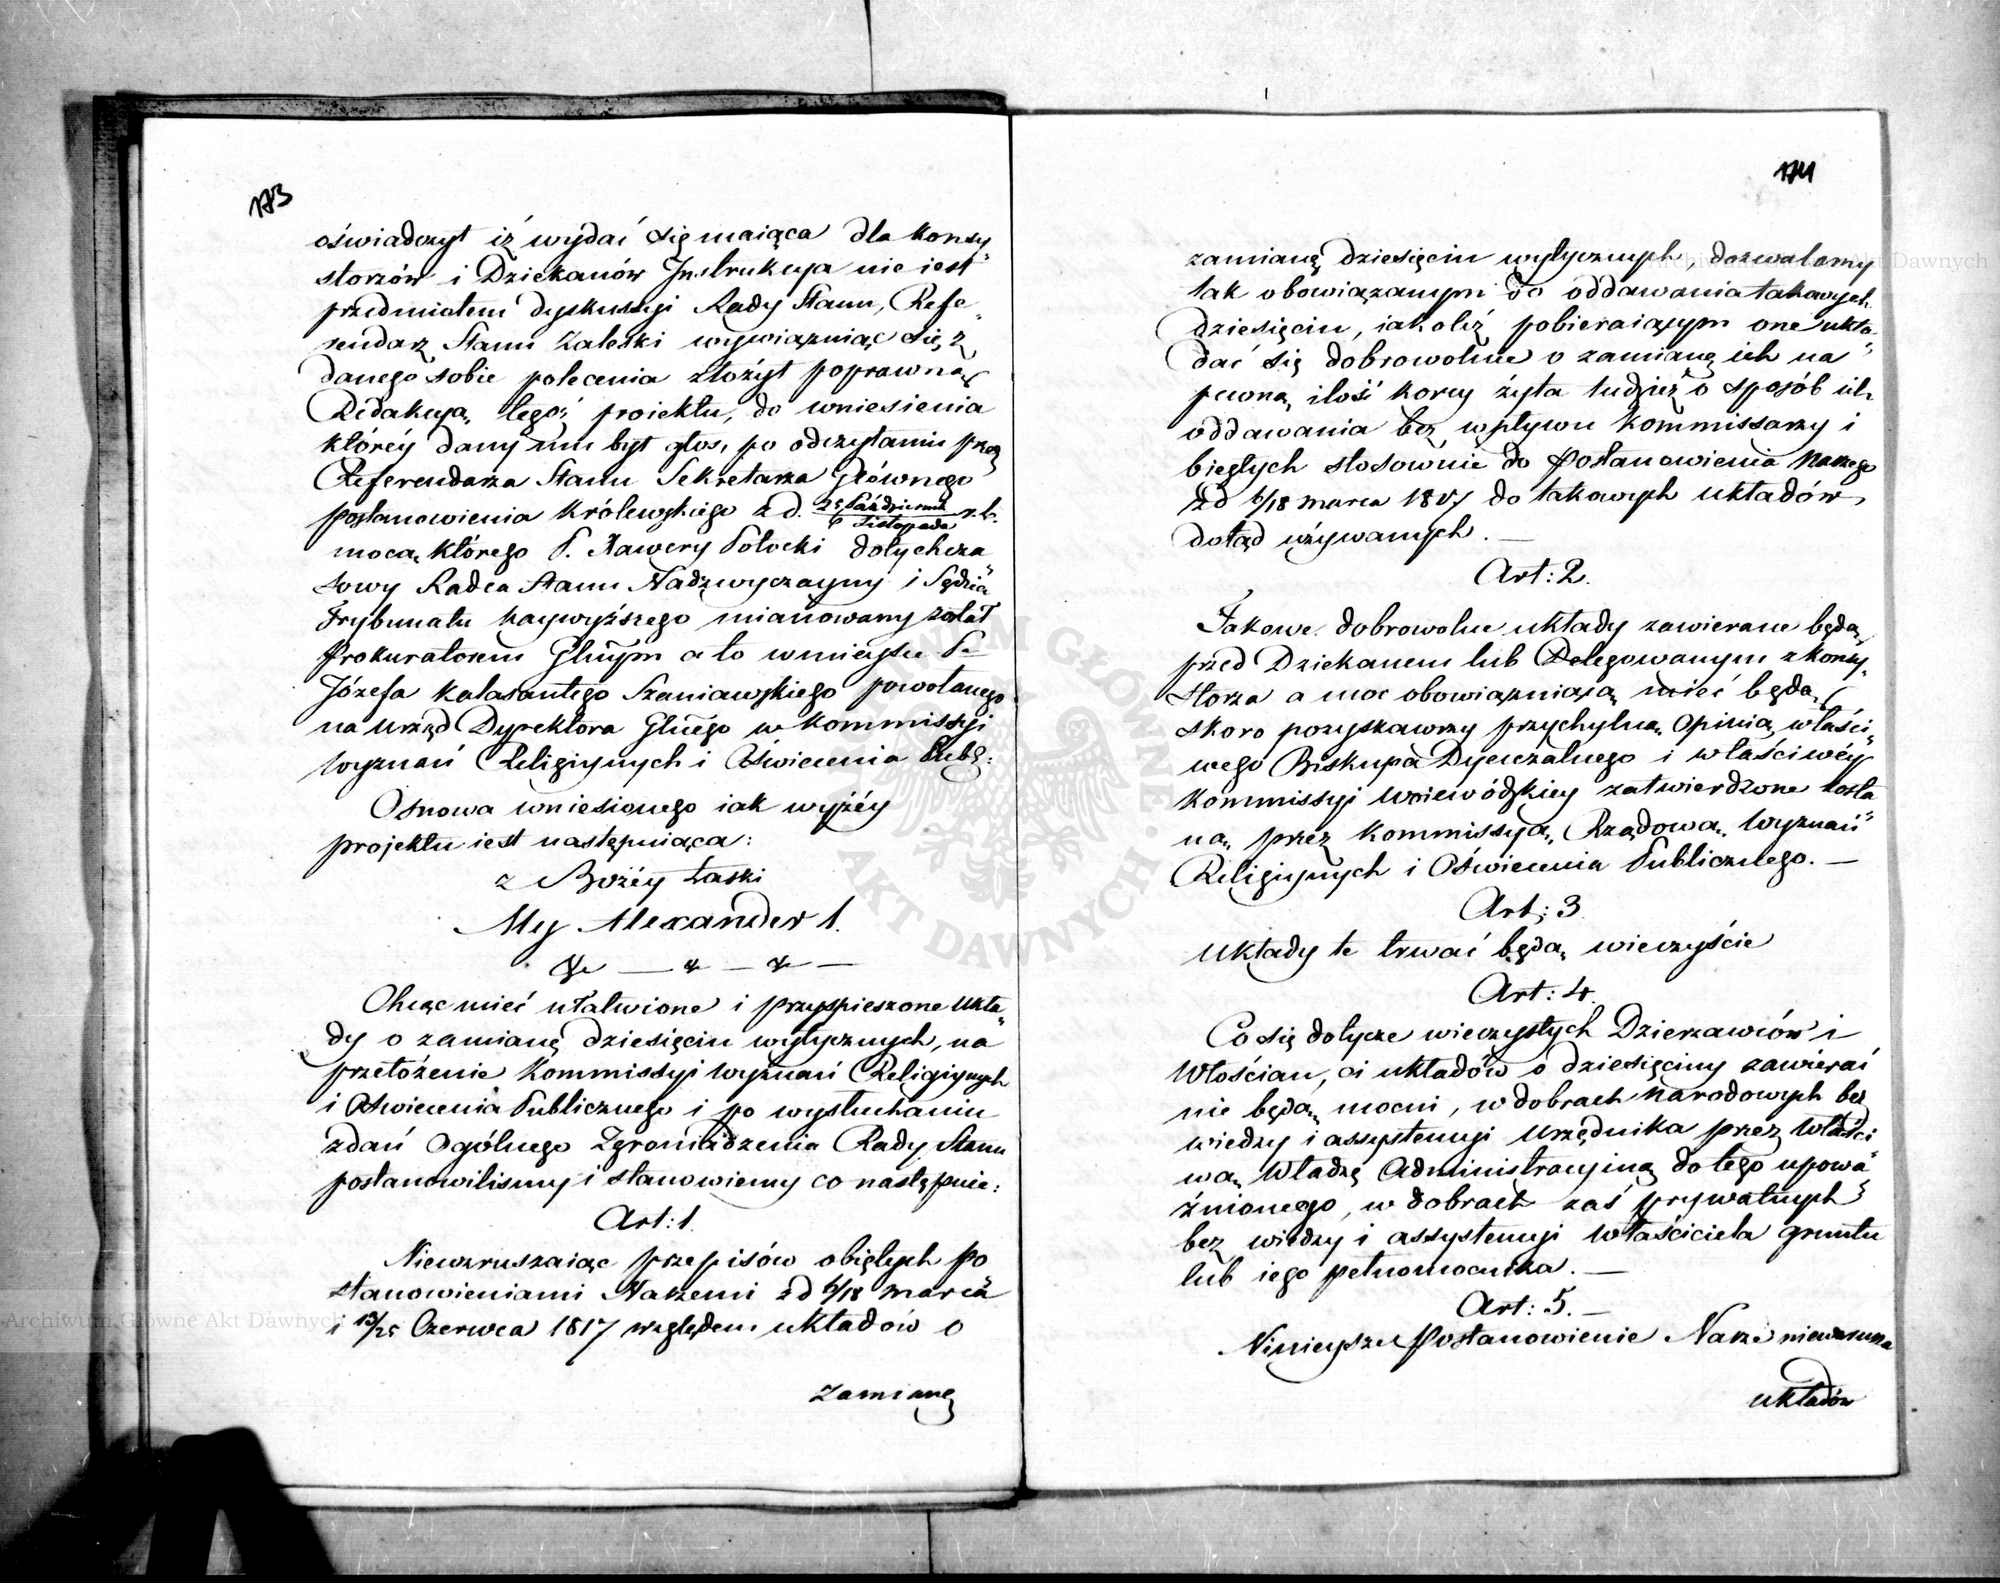 173
oświadczył iż wydać się maiąca dla konsy„
storzów i Dziekanów Instrukcya nie iest
przedmiotem dyskussyi Rady Stanu, Refe„
rendarz Stanu Zaleski wywiązuiąc się z
danego sobie polecenia złożył poprawną
Redakcyą tegoż proiektu, do wniesienia
któréy dany mu był głos, po odczytaniu przez
Referendarza Stanu Sekretarza Głównego
postanowienia Królewskiego z d. 25 Października / 6 Listopada r.b.
mocą którego P. Xawery Potocki dotychcza„
sowy Radca Stanu Nadzwyczayny i Sędzia
Trybunału naywyższego mianowany został
Prokuratorem Głnym a to w mieyscu P.
Józefa Kalasantego Szaniawskiego powołanego
na urząd Dyrektora Głnego w Kommissyi
Wyznań Religiynych i Oświecenia Publ:
Osnowa wniesionego iak wyżéy
projektu iest następuiąca:
z Bożéy Łaski
My Alexander 1.
& — & — & —
Chcąc mieć ułatwione i przyspieszone ukła„
dy o zamianę dziesięcin wytycznych, na
przełożenie Kommissyi Wyznań Religiynych
i Oświecenia Publicznego i po wysłuchaniu
zdań Ogólnego Zgromadzenia Rady Stanu
postanowiliśmy i stanowiemy co następuie:
Art: 1.
Niewzruszaiąc przepisów obiętych Po
stanowieniami Naszemi z d 6/18 marca
i 13/25 Czerwca 1817 względem układów o
zamianę
174
zamianę dziesięcin wytycznych, dozwalamy
tak obowiązanym do oddawania takowych
dziesięcin, iakoteż pobieraiącym one ukła„
dać się dobrowolnie o zamianę ich na
pewną ilość korcy żyta tudzież o sposób ich
oddawania bez wpływu Kommissarzy i
biegłych stosownie do Postanowienia Naszego
z d 6/18 marca 1817 do takowych układów
dotąd używanych. —
Art: 2.
Takowe dobrowolne układy zawierane będą
przed Dziekanem lub Delegowanym z konsy„
storza a moc obowiązuiącą mieć będą
skoro pozyskawszy przychylną Opinią właści„
wego Biskupa Dyecezalnego i właściwéy
Kommissyi Woiewódzkiey zatwierdzone zosta
ną przez Kommissyą Rządową Wyznań
Religiynych i Oświecenia Publicznego. —
Art: 3.
Układy te trwać będą wieczyście
Art: 4.
Co się dotycze wieczystych Dzierzawców i
Włościan, ci układów o dziesięciny zawierać
nie będą mocni, w dobrach Narodowych bez
wiedzy i assystencyi Urzędnika przez Właści
wą Władzę Administracyiną do tego upowa„
żnionego, w dobrach zaś prywatnych
bez wiedzy i assystencyi właściciela gruntu
lub iego pełnomocnika. —
Art: 5. —
Ninieysze Postanowienie Nasze niewzrusza
układów
Archiwum Główne Akt Dawnych